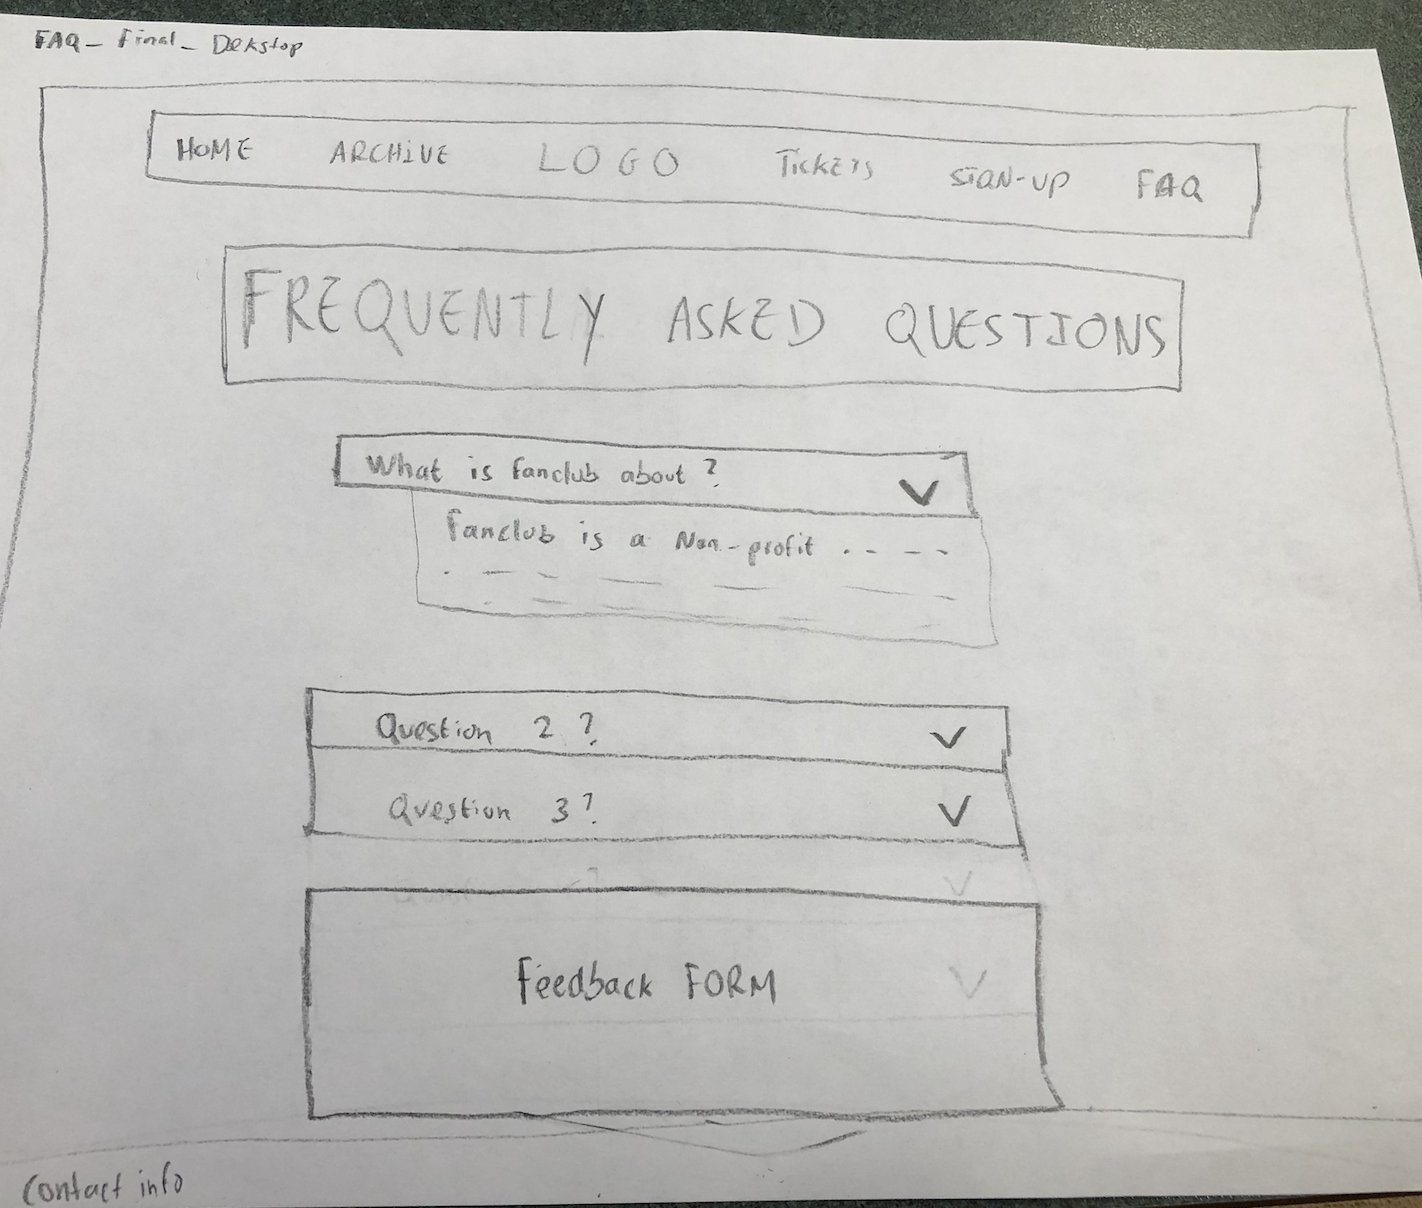 FAQ_ Final_ Dekstop
HOME ARCHIVE LOGO Tickets SIGN-UP FAQ
FREQUENTLY ASKED QUESTIONS
What is fanclub about?
Fanclub is a Non-profit
Question 2 ?
Question 3?
Feedback FORM
Contact info